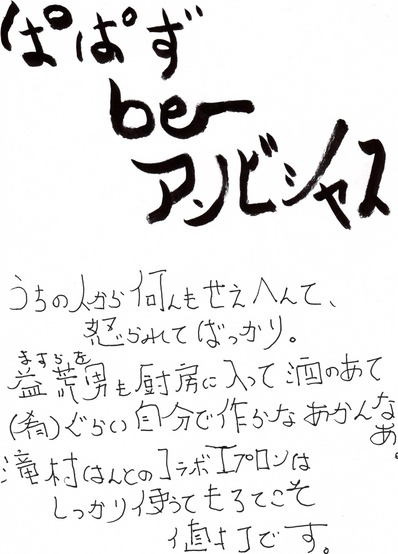 ぱぱず
be
アンビシャス
うちの人から何んもせえへんて、
怒られてばっかり。
ますらを
益荒男も厨房に入って酒のあて
(肴)ぐらい自分で作らな あかんなあ。
滝村はんとのコラボエプロンは
しっかり使ってもろてこそ
値打です。